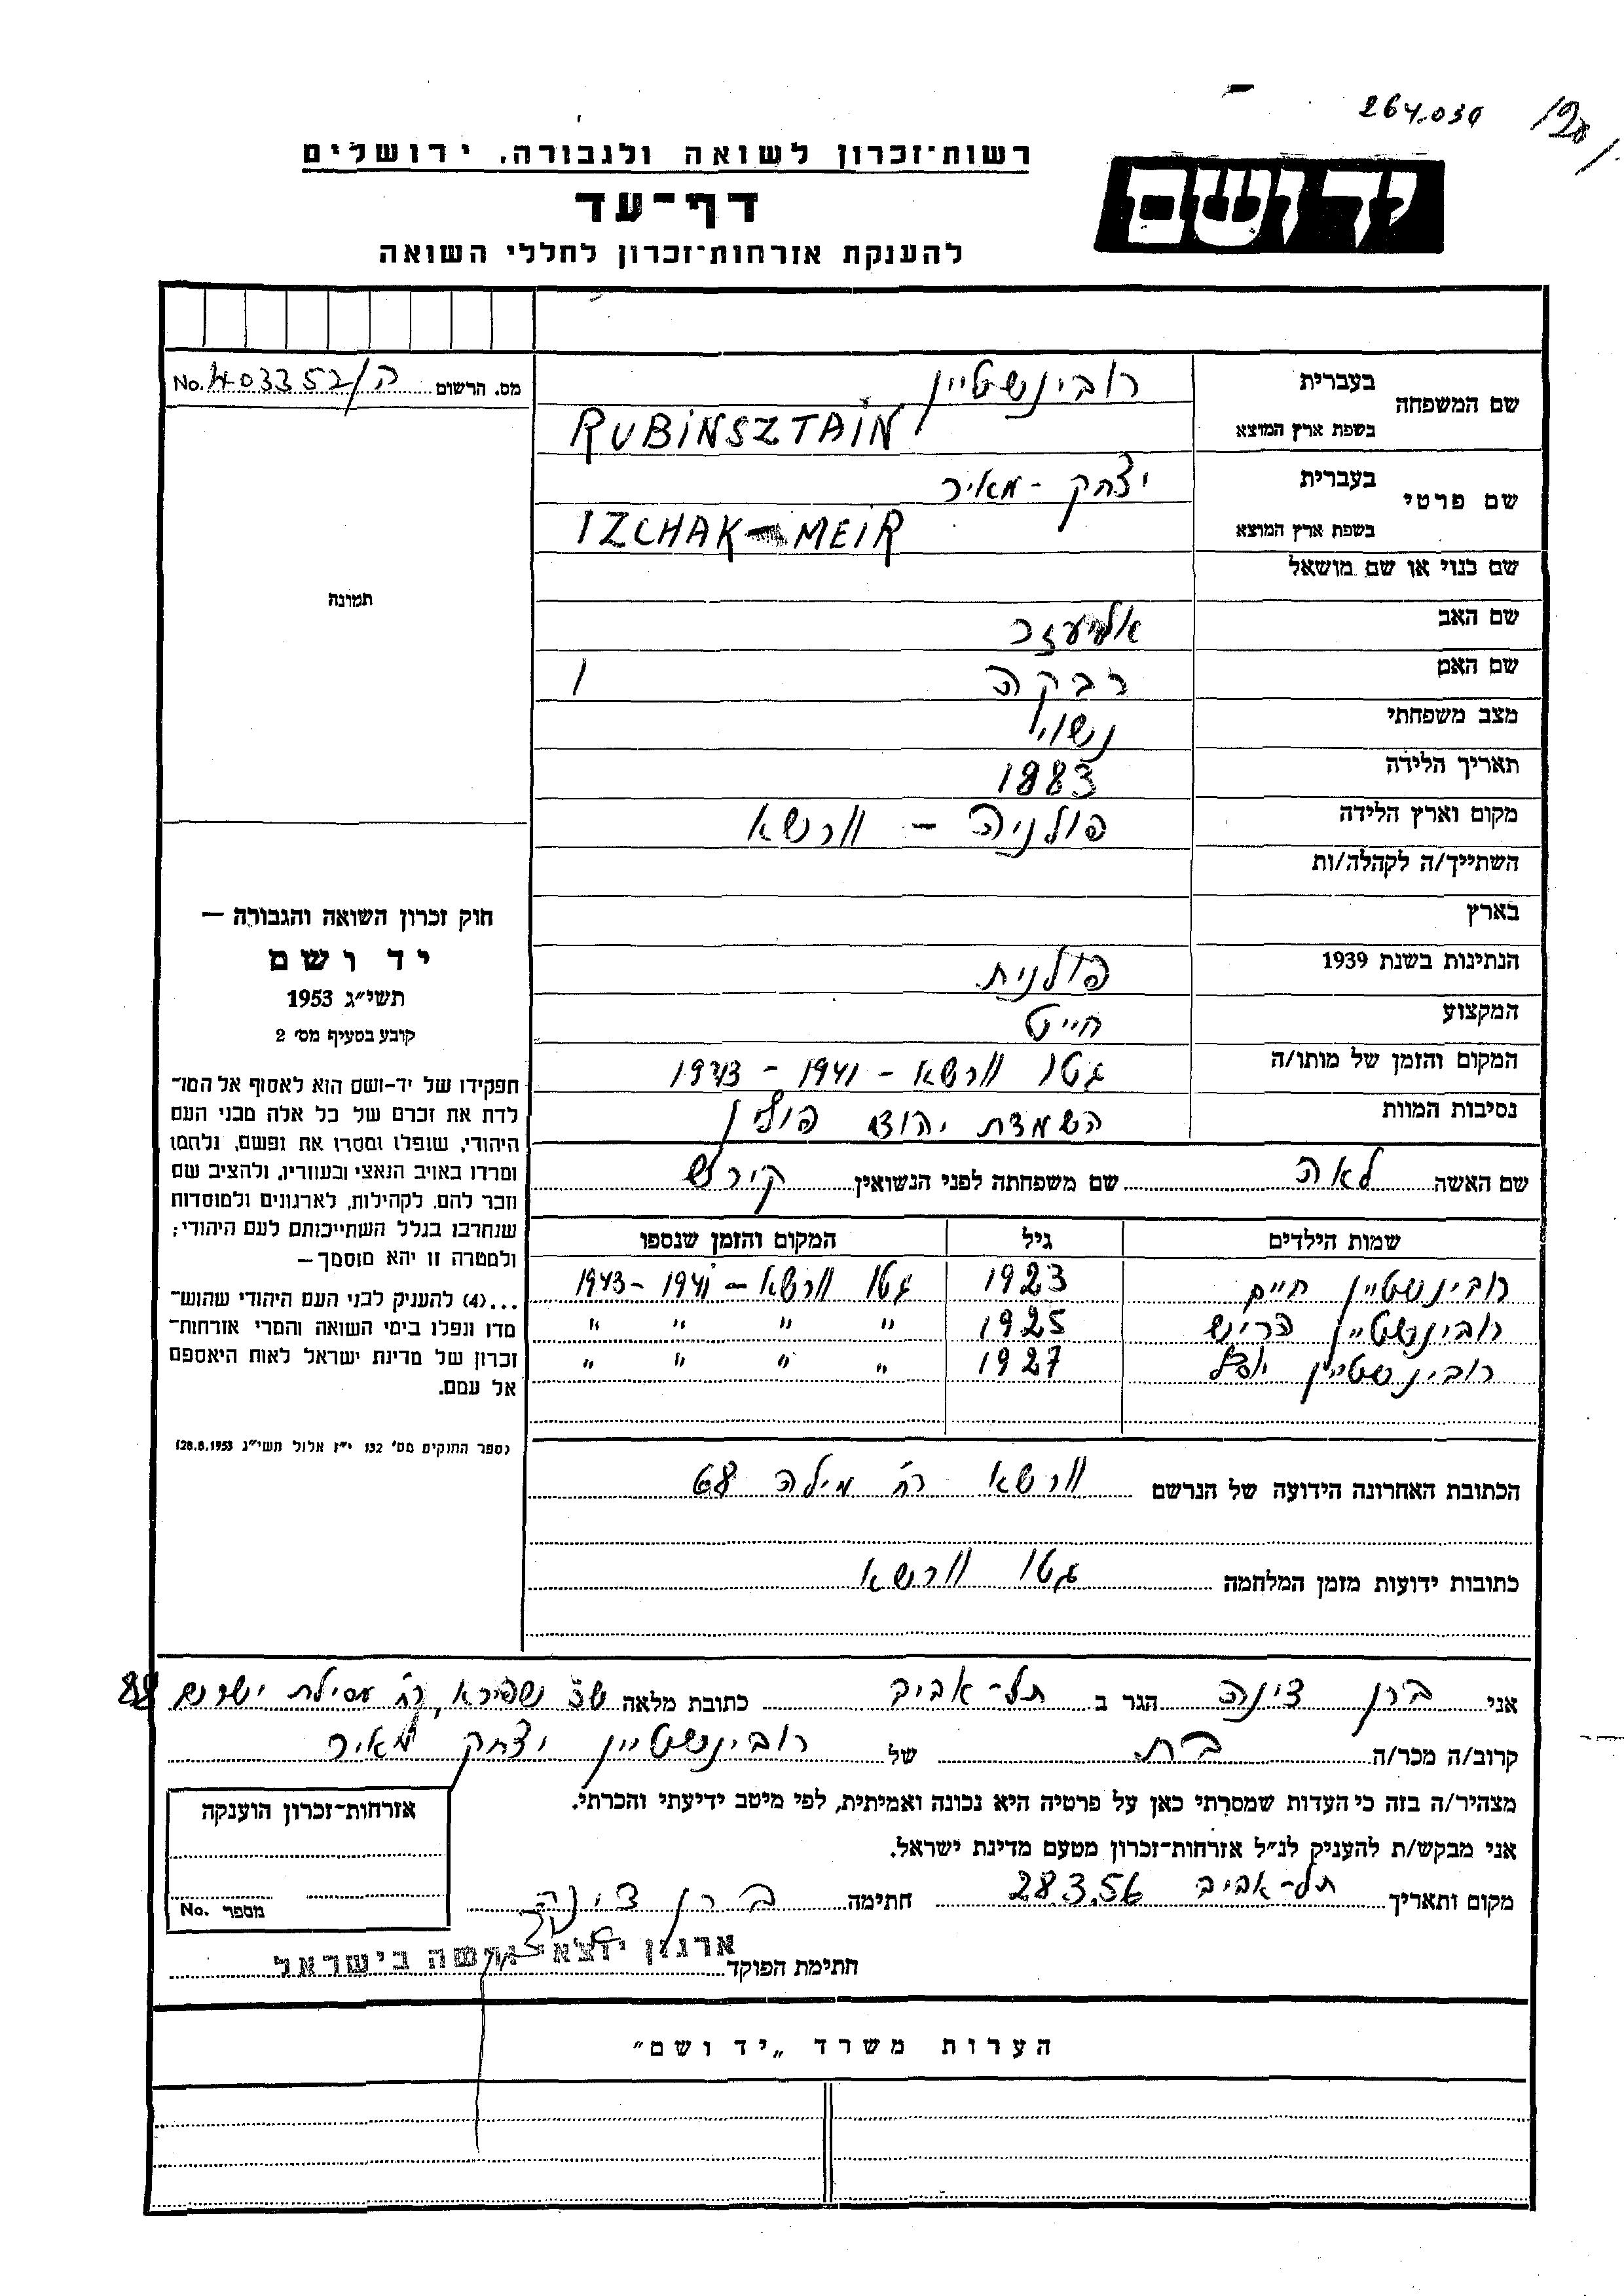 264.039
רשות־זכרון לשואה ולגבורה, ירושלים
יד ושם
דף־עד
להענקת אזרחות־זכרון לחללי השואה
מס. הרשום ה/403352 No.
שם המשפחה בעברית רובינשטיין
בשפת ארץ המוצא RUBINSZTAIN
שם פרטי בעברית יצחק - מאיר
בשפת ארץ המוצא IZCHAK - MEIR
שם כנוי או שם מושאל
תמונה
שם האב אליעזר
שם האם רבקה
מצב משפחתי נשוי
תאריך הלידה 1883
מקום וארץ הלידה פולניה - וורשא
השתייך/ה לקהלה/ות
בארץ
הנתינות בשנת 1939 פולנית
המקצוע חייט
המקום והזמן של מותו/ה גטו וורשא - 1941 - 1943
נסיבות המוות השמדת יהודי פולין
שם האשה לאה שם משפחתה לפני הנשואין קירש
שמות הילדים גיל המקום והזמן שנספו
רובינשטיין חיים 1923 גטו וורשא - 1941 - 1943
רובינשטיין 1925 " " " "
רובינשטיין 1927 " " " "
הכתובת האחרונה הידועה של הנרשם וורשא רח' מילה 68
כתובות ידועות מזמן המלחמה גטו וורשא
חוק זכרון השואה והגבורה —
יד ושם
תשי״ג 1953
קובע בסעיף מס׳ 2
תפקידו של יד-ושם הוא לאסוף אל המו־
לדת את זכרם של כל אלה מבני העם
היהודי, שנפלו ומסרו את נפשם, נלחמו
ומרדו באויב הנאצי ובעוזריו, ולהציב שם
וזכר להם, לקהילות, לארגונים ולמוסדות
שנחרבו בגלל השתייכותם לעם היהודי;
ולמטרה זו יהא מוסמך —
...(4) להעניק לבני העם היהודי שהוש־
מדו ונפלו בימי השואה והמרי אזרחות־
זכרון של מדינת ישראל לאות היאספם
אל עמם.
(ספר החוקים מס׳ 132 י״ז אלול תשי״ג 28.8.1953)
אני ברן דינה הגר ב תל-אביב כתובת מלאה שפירא רח' מסילת ישרים 88
קרוב/ה מכר/ה בת של רובינשטיין יצחק מאיר
מצהיר/ה בזה כי העדות שמסרתי כאן על פרטיה היא נכונה ואמיתית, לפי מיטב ידיעתי והכרתי.
אני מבקש/ת להעניק לנ״ל אזרחות־זכרון מטעם מדינת ישראל.
מקום ותאריך תל-אביב 28.3.56 חתימה ברן דינה
חתימת הפוקד ארגון יוצאי ורשה בישראל
אזרחות־זכרון הוענקה
מספר No.
הערות משרד „יד ושם״